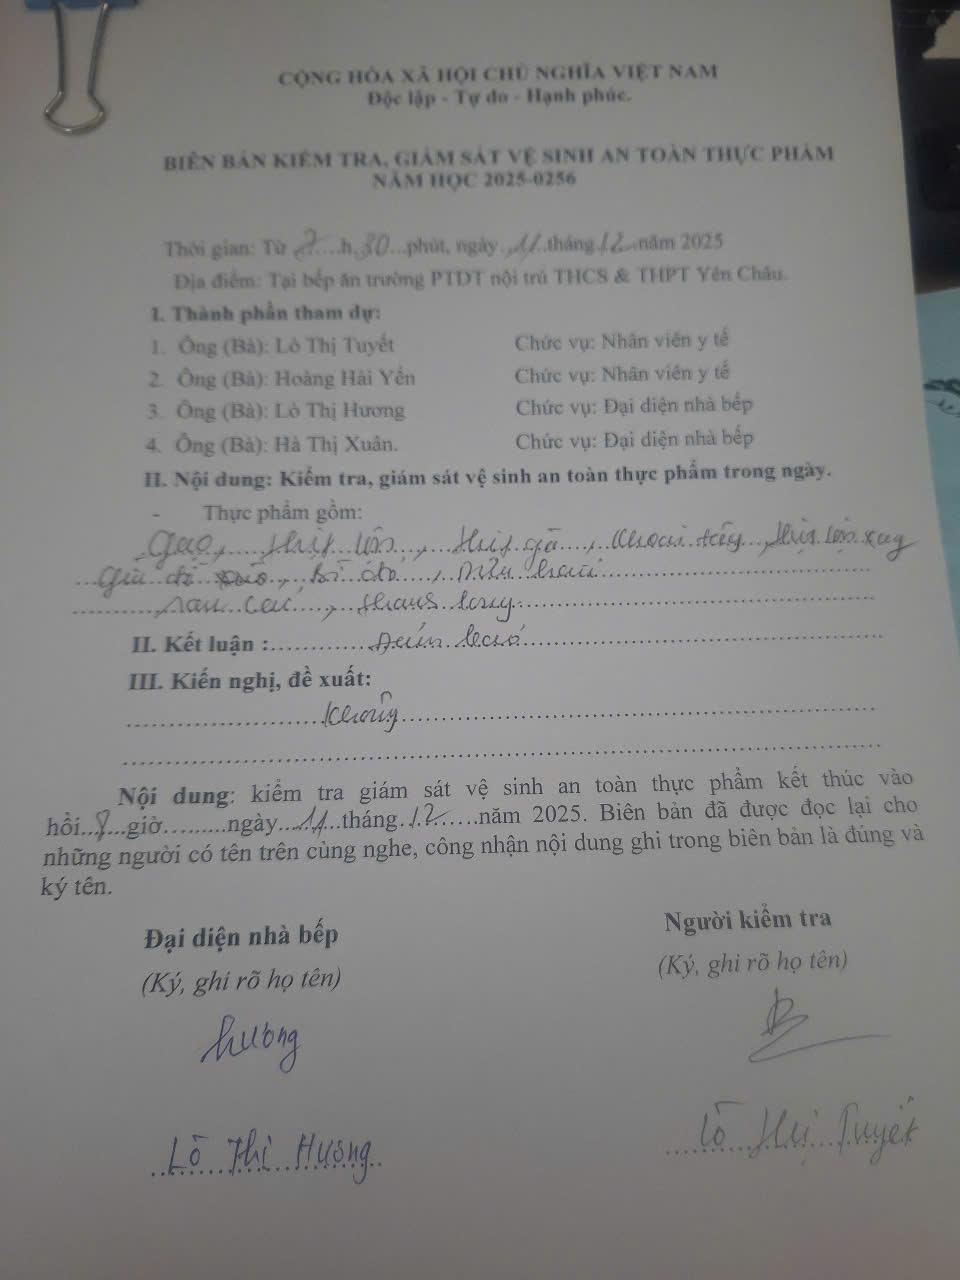 CỘNG HÒA XÃ HỘI CHỦ NGHĨA VIỆT NAM
Độc lập - Tự do - Hạnh phúc.
BIÊN BẢN KIỂM TRA, GIÁM SÁT VỆ SINH AN TOÀN THỰC PHẨM
NĂM HỌC 2025-0256
Thời gian: Từ 7....h.30...phút, ngày..11.tháng.12..năm 2025
Địa điểm: Tại bếp ăn trường PTDT nội trú THCS & THPT Yên Châu.
I. Thành phần tham dự:
1. Ông (Bà): Lò Thị Tuyết Chức vụ: Nhân viên y tế
2. Ông (Bà): Hoàng Hải Yến Chức vụ: Nhân viên y tế
3. Ông (Bà): Lò Thị Hương Chức vụ: Đại diện nhà bếp
4. Ông (Bà): Hà Thị Xuân. Chức vụ: Đại diện nhà bếp
II. Nội dung: Kiểm tra, giám sát vệ sinh an toàn thực phẩm trong ngày.
- Thực phẩm gồm:
Gạo, thịt lợn, thịt gà, khoai tây, thịt lợn xay
bí đỏ,
rau cải,
II. Kết luận :
III. Kiến nghị, đề xuất:
Không
Nội dung: kiểm tra giám sát vệ sinh an toàn thực phẩm kết thúc vào
hồi...8...giờ.........ngày...11...tháng.12.....năm 2025. Biên bản đã được đọc lại cho
những người có tên trên cùng nghe, công nhận nội dung ghi trong biên bản là đúng và
ký tên.
Đại diện nhà bếp Người kiểm tra
(Ký, ghi rõ họ tên) (Ký, ghi rõ họ tên)
Hương
Lò Thị Hương Lò Thị Tuyết